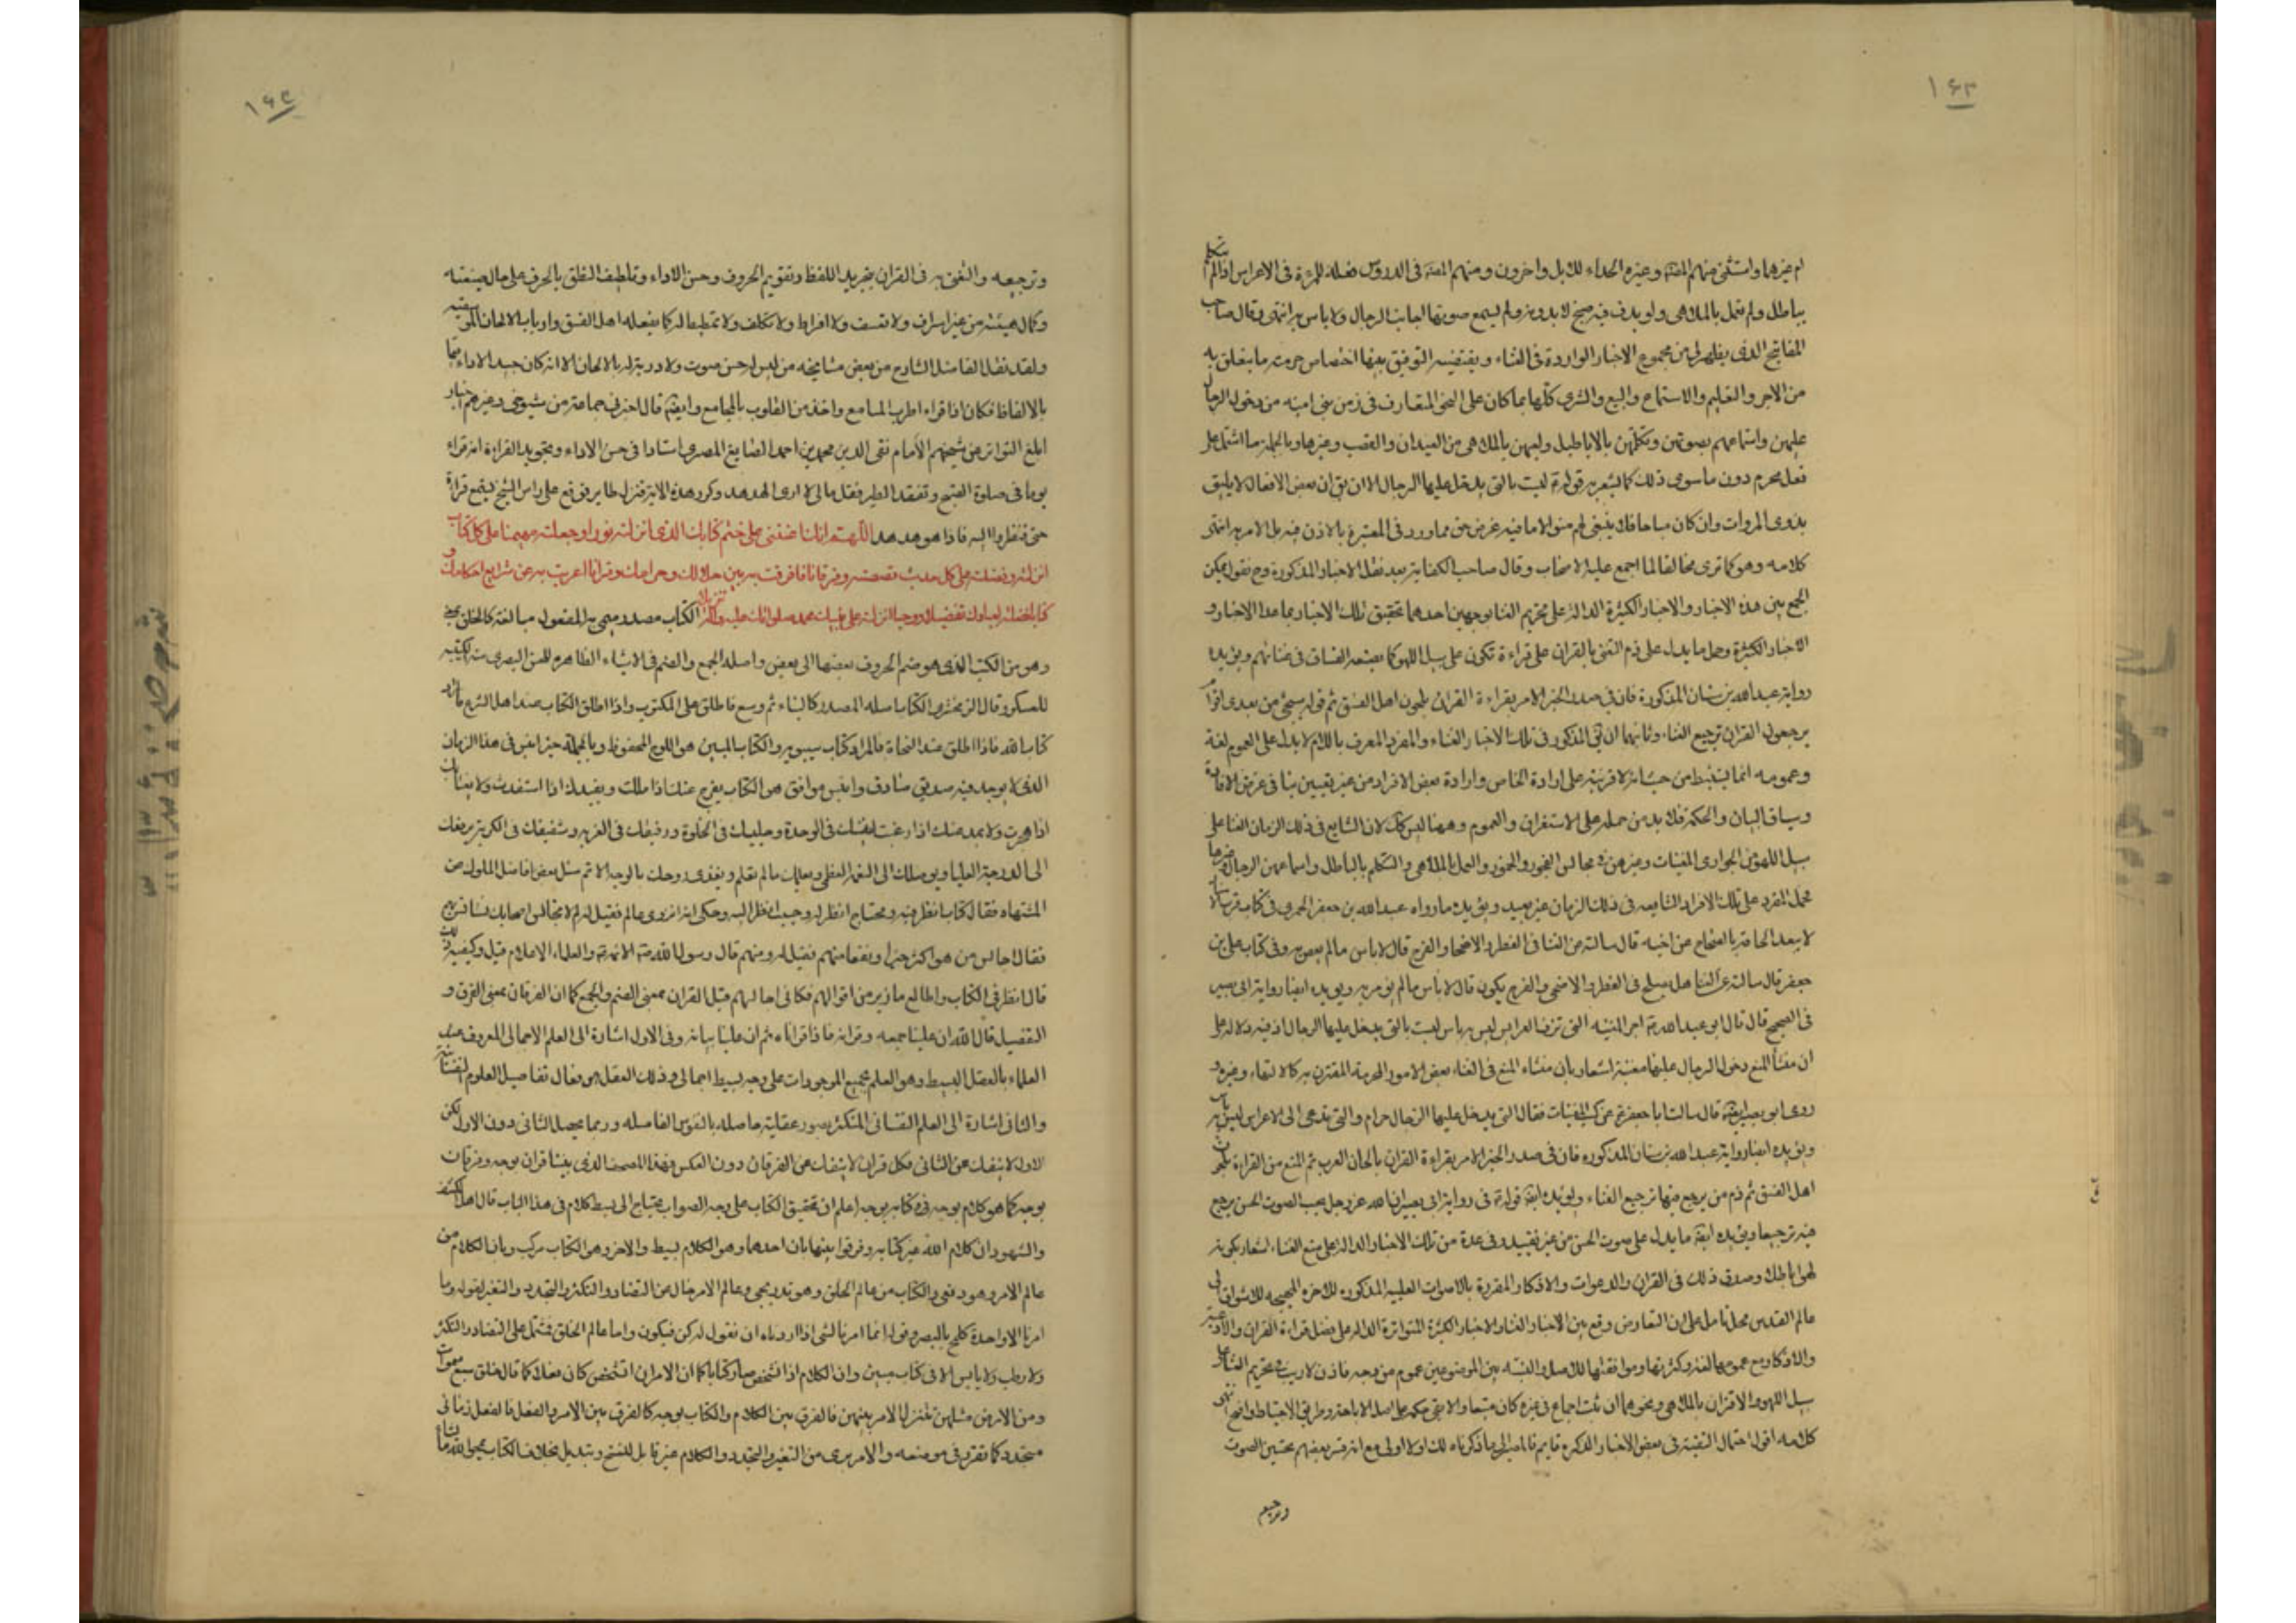 ١٦٣
ام غيرها واستثنى منهم المفيد وغيره الحداء للابل واخرون ومنهم في الدروس فعله للمرءة في الاعراس اذا لم تتكلم
بباطل ولم تعمل بالملاهي ولو بدف فيه صنج لا بدونه ولم يسمع صوتها اجانب الرجال ولا باس به انتهى وقال صاحب
المفاتيح الذي يظهر لي من مجموع الاخبار الواردة في الغناء ويقتضيه التوفيق بينها اختصاص حرمته وما يتعلق به
من الاجر والتعليم والاستماع والبيع والشرى كلها بما كان على النحو المتعارف في زمن بني امية من دخول الرجال
عليهن واستماعهم بصوتهن وتكلمهن بالاباطيل ولعبهن بالملاهي من العيدان والقصب وغيرها وبالجملة ما اشتمل على
فعل محرم دون ما سوى ذلك كما يشعر به قوله ع ليست بالتي يدخل عليها الرجال الا ان يق ان بعض الافعال لا يليق
بذوي المروات وان كان مباحا فلا ينبغي لهم منه الا ما فيه غرض حق مما ورد في المعتبرة بالاذن فيه بل الامر به انتهى
كلامه وهو كما ترى مخالف لما اجمع عليه الاصحاب وقال صاحب الكفاية بعد نقل الاخبار المذكورة وح نقول يمكن
الجمع بين هذه الاخبار والاخبار الكثيرة الدالة على تحريم الغنا بوجهين احدهما تحقيق تلك الاخبار بما عدا الاخبار و
الاخبار الكثيرة وحمل ما يدل على ذم التغني بالقران على قراءة تكون على سبيل اللهو كما يصنعه الفساق في غنائهم ويؤيده
رواية عبدالله بن سنان المذكورة فان في صدر الخبر الامر بقراءة القران بلحون اهل الفسق ثم قوله سيجئ من بعدي اقوام
يرجعون القران ترجيع الغناء وثانيهما ان يق المذكور في تلك الاخبار الغناء والمفرد المعرف باللام لا يدل على العموم لغة
وعمومه انما يستنبط من حيث انه لا قرينة على ارادة الخاص وارادة بعض الافراد من غير تعيين ينافي غرض الافادة
وسياق البيان والحكمة فلا بد من حمله على الاستغراق والعموم وههنا ليس كك لان الشايع في ذلك الزمان الغنا على
سبيل اللهو من الجواري المغنيات وغيرهن في مجالس الفجور والخمور والعمل بالملاهي والتكلم بالباطل واسماعهن الرجال وغيرها
فحمل المفرد على تلك الافراد الشايعه في ذلك الزمان غير بعيد ويؤيده ما رواه عبدالله بن جعفر الحميري في كتاب قرب الاسناد
لا يبعد الحاقه بالصحاح عن اخيه قال سالته عن الغنا في الفطر والاضحى والفرح قال لا باس ما لم يعص به وفي كتاب علي بن
جعفر قال سالته عن الغنا هل يصلح في الفطر والاضحى والفرح يكون قال لا باس ما لم يؤمر به ويؤيده ايضا رواية ابي بصير
في الصحيح قال قال ابو عبدالله ع اجر المغنية التي تزف العرايس ليس به باس ليست بالتي يدخل عليها الرجال اذ فيه دلالة على
ان منشأ المنع دخول الرجال عليها ففيه اشعار بان منشاء المنع في الغناء بعض الامور المحرمة المقترن به كالالتقاء وغيره و
روى ابو بصير ايضا قال سالت ابا جعفر ع عن كسب المغنيات فقال التي يدخل عليها الرجال حرام والتي تدعى الى الاعراس ليس به باس
ويؤيده ايضا رواية عبد الله بن سنان المذكوره فان في صدر الخبر الامر بقراءة القران بالحان العرب ثم المنع من القراءة بلحون
اهل الفسق ثم ذم من يرجع فيها ترجيع الغناء ويؤيده ايضا قوله ع في رواية ابي بصير ان الله عز وجل يحب الصوت الحسن يرجع
فيه ترجيعا ويؤيده ايضا ما يدل على صوت الحسن من غير تقييد وفي عدة من تلك الاخبار الدالة على منع الغناء اشعار بكونه
لهوا باطلا وصدق ذلك في القران والدعوات والاذكار المقروة بالاصوات الطيبة المذكورة للاخره المهيجه للاشواق الى
عالم القدس محل تامل على ان التعارض وقع بين الاخبار الغنا والاخبار الكثيرة المتواترة الدالة على فضل قراءة القران والادعيه
والاذكار مع عمومها لغة وكثرتها وموافقتها للاصل والنسبة بين الموضوعين عموم من وجه فاذن لا ريب في تحريم الغناء على
سبيل اللهو والاقتران بالملاهي ونحوهما ثم ان ثبت اجماع في غيره كان متبعا والا بقي حكمه على اصل الاباحة وطريق الاحتياط واضح انتهى
كلامه اقول احتمال التقية في بعض الاخبار الذكره قايم فالمصير الى ما ذكرناه لك اولا اولى مع انه فسر بعضهم تحسين الصوت
وترجيعه
١٦٤
وترجيعه والتغنى به في القران بتجريد اللفظ وتقويم الحروف وحسن الاداء وتلطيف النطق بالحرف على حال صيغته
وكمال هيئته من غير اسراف ولا تعسف ولا افراط ولا تكلف ولا تمطيط له كما يفعله اهل الفسق وارباب الالحان الموسيقيه
ولقد نقل الفاضل الشارح من بعض مشايخه من ليس له حسن صوت ولا دربة له بالالحان الا انه كان جيد الاداء قيما
بالالفاظ فكان اذا قراء اطرب المسامع واخذ من القلوب بالمجامع وايضا قال اخبرني جماعة من شيوخي وغيرهم اخبارا
ابلغ التواتر عن شيخهم الأمام تقي الدين محمد بن احمد الصايغ المصري استادا في حسن الاداء وتجويد القراءة انه قراء
يوما في صلوة الصبح وتفقد الطير فقال مالي لا ارى الهدهد وكرر هذه الاية فنزل طاير فوقع على راس الشيخ ليسمع قراءة
حتى فنظروا اليه فاذا هو هدهد اللهم انك اعنتني على ختم كتابك الذي انزلته نورا وجعلته مهيمنا على كل كتاب
انزلته وفضلته على كل حديث قصصته وفرقانا فرقت به بين حلالك وحرامك وقرانا اعربت به عن شرايع احكامك و
كتابا فصلته لعبادك تفصيلا ووحيا انزلته على نبيك محمد صلواتك عليه واله تنزيلا الكتاب مصدر سمي به المفعول مبالغة كالخلق بمعنى
وهو من الكتب الذي هو ضم الحروف بعضها الى بعض واصله الجمع والضم في الاشياء الظاهرة للحس البصري منه الكتيبه
للعسكر وقال الزمخشري الكتاب اصله المصدر كالبناء ثم وسع فاطلق على المكتوب واذا اطلق الكتاب عند اهل الشرع فالمراد
كتاب الله فاذا اطلق عند النحاة فالمراد كتاب سيبويه والكتاب المبين هو اللوح المحفوظ وبالجملة خير انيس في هذا الزمان
الذي لا يوجد فيه صديق صادق وانيس موافق هو الكتاب يفرج عنك اذا مللت ويفيدك اذا استفدت ولا يغتابك
اذا هجرت ولا يبعد عنك اذا رغبت انيسك في الوحدة وجليسك في الخلوة ورفيقك في الغربه وشفيقك في الكربة يرفعك
الى الدرجة العليا ويوصلك الى النعمة العظمى ويعلمك ما لم تعلم ويغذي روحك بالوجه الاتم سئل بعض افاضل الملوك عن
المشتهاه فقال كتاب انظر فيه ومحتاج انظر له وحبيب انظر اليه وحكى انه انزوى عالم فقيل له لم لا تجالس اصحابك
فقال اجالس من هو اكثر خيرا ونفعا منهم فقيل له ومنهم قال رسول الله ص الائمة ع والعلماء الاعلام قيل وكيفيه ذلك
قال انظر في الكتاب واطالع ما زبر من اقوالهم فكاني اجالسهم قيل القران بمعنى الضم والجمع كما ان الفرقان بمعنى الفرق و
التفصيل قال الله ان علينا جمعه وقرانه فاذا قراناه ثم ان علينا بيانه وفي الاول اشارة الى العلم الاجمالي المعروف عند
العلماء بالعقل البسيط وهو العلم بجميع الموجودات على وجه بسيط اجمالي وذلك العقل هو فعال تفاصيل العلوم النفسانية
والثاني اشارة الى العلم النفساني المتكثر بصور عقلية حاصله بالنفوس الفاضله وربما يحصل الثاني دون الاول لكن
الاول لا ينفك عن الثاني فكل قران لا ينفك عن الفرقان دون العكس فهذا المصحف الذي بيننا قران بوجه وفرقان
بوجه كما هو كلام بوجه وكتاب بوجه اعلم ان تحقيق الكتاب على وجه الصواب يحتاج الى بسط كلام في هذا الباب قال اهل الكشف
والشهود ان كلام الله غير كتابه وفرقوا بينها بان احدهما وهو الكلام بسيط والاخر وهو الكتاب مركب وبان الكلام من
عالم الامر وهو دفعي والكتاب من عالم الخلق وهو تدريجي وعالم الامر خال عن التضاد والتكثر والتجدد والتغير لقوله وما
امرنا الا واحدة كلمح بالبصر وقوله انما امرنا لشئ اذا اردناه ان نقول له كن فيكون واما عالم الخلق فمشتمل على التضاد والتكثر
ولا رطب ولا يابس الا في كتاب مبين وان الكلام اذا تشخص صار كتابا كما ان الامر ان تشخص كان فعلا كما قال خلق سبع سموات
ومن الارض مثلهن يتنزل الامر بينهن فالفرق بين الكلام والكتاب بوجه كالفرق بين الامر والفعل فالفعل زماني
متجدد كما تقرر في موضعه والامر بري من التغير والتجدد والكلام غير قابل للنسخ وتبديل بخلاف الكتاب يمحوا الله ما يشاء